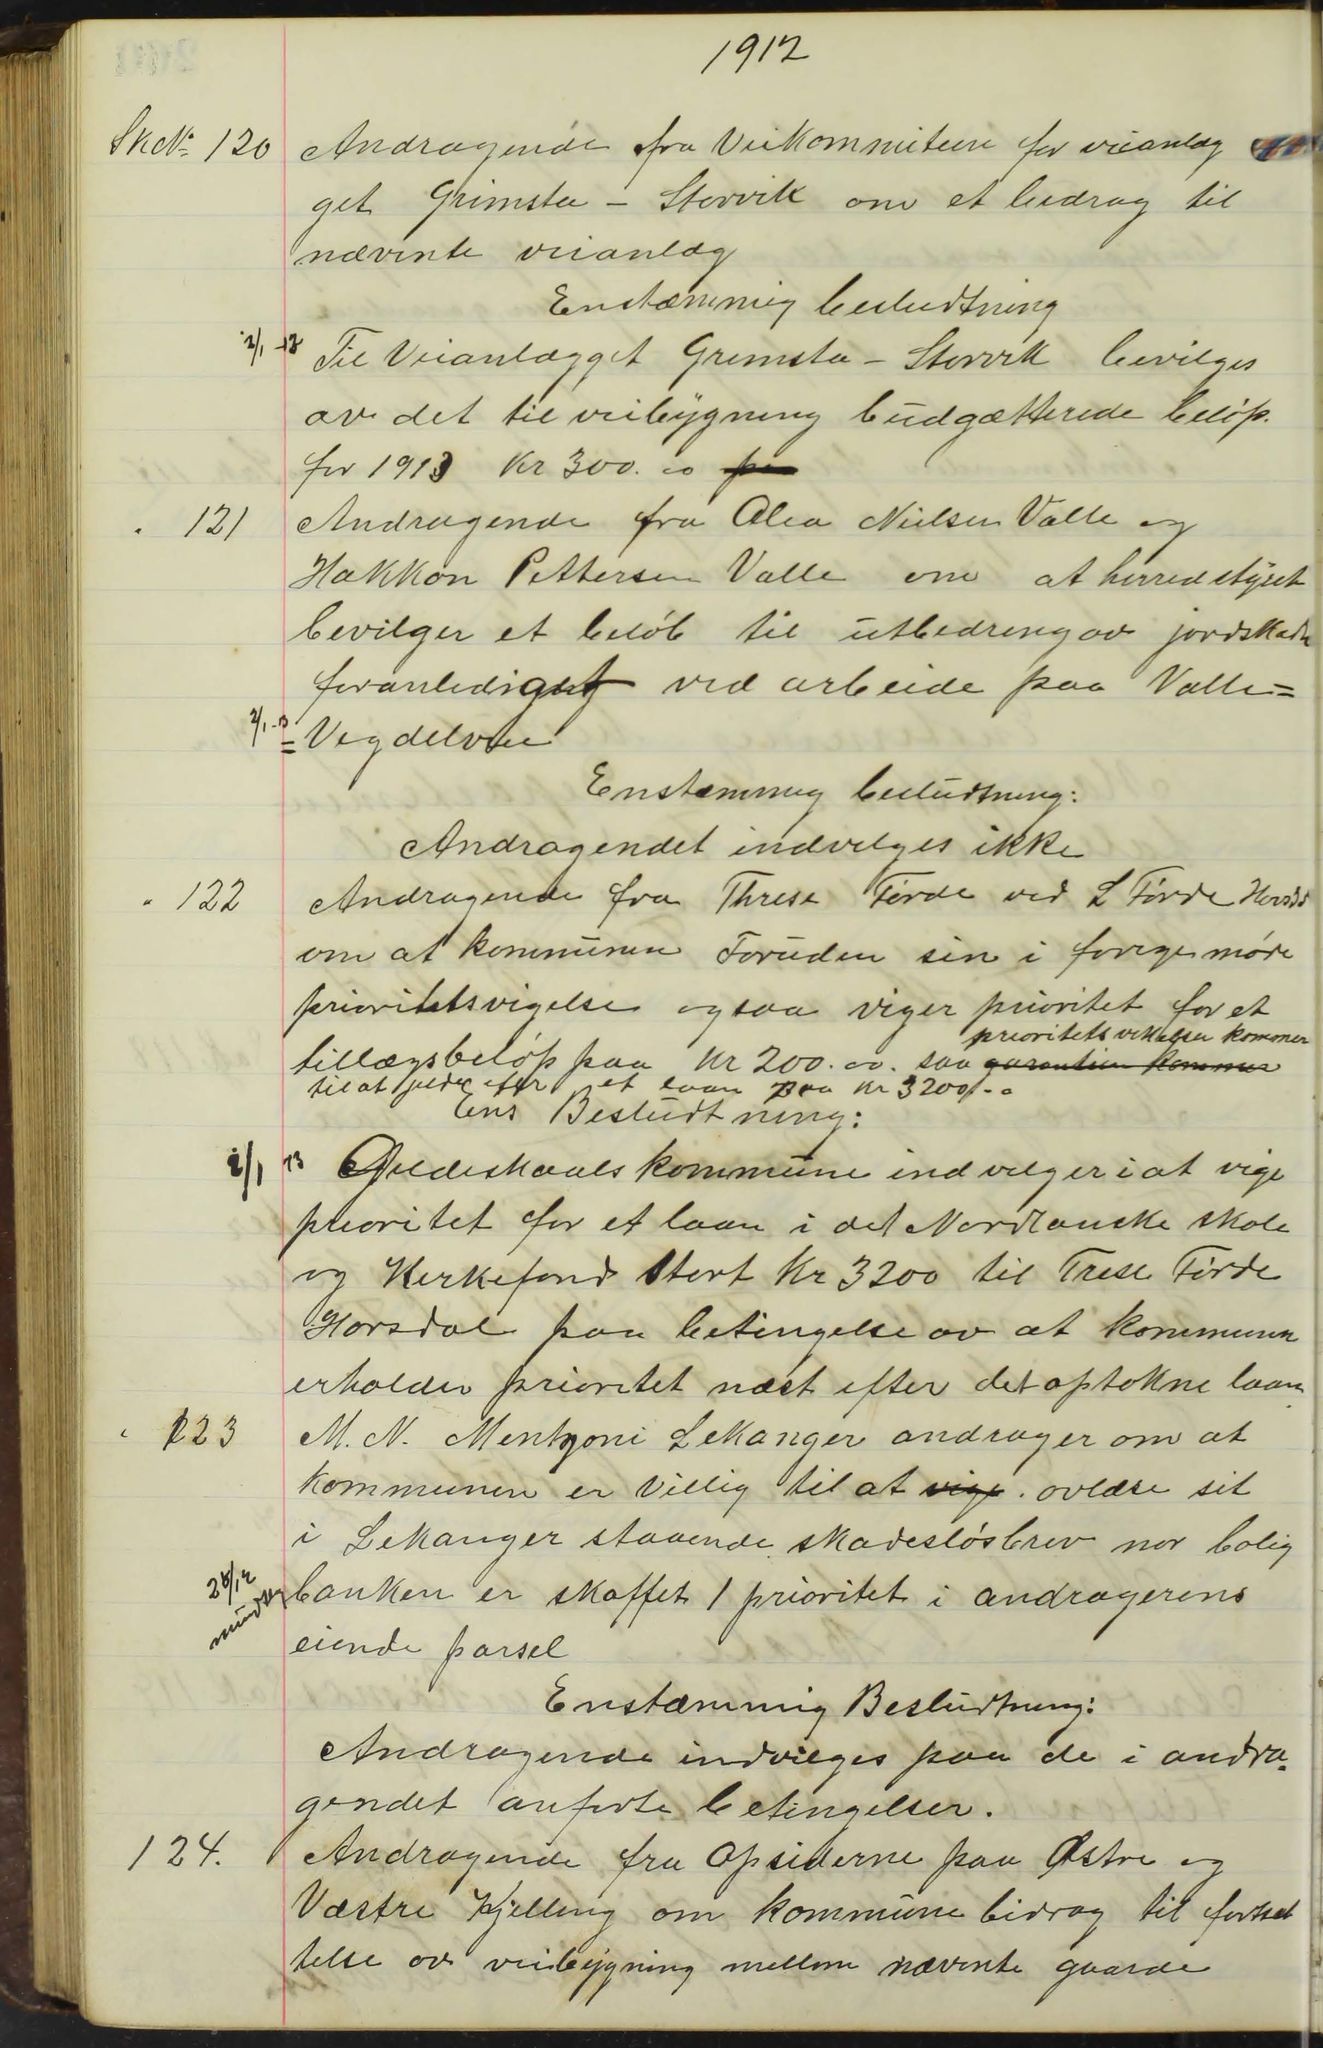 1912
Sk№ 120 Andragende fra Veikommiteen for veianlæg
get Grimsta - Storvik om et bidrag til
nævnte veianlæg
Enstæmmig besludtning
2/1 -13 Til Veianlægget Gremsta - Storvik bevilges
av det til veibygning budgætterede beløp
for 1913 Kr 300.00
" 121 Andragende fra Alea Nielsen Valle og
Hakkon Pettersen Valle om at herredstyret
bevilger et beløb til utbedring av jordskade
foranlediget ved arbeide paa Valle=
2/1-13 = Vegdelven
Enstemmig besludtning:
Andragendet indvelges ikke
" 122 Andragende fra Threse Førde ved L Førde Horsd
om at kommunen Foruden sin i forrige møde
prioritetsvigelse ogsaa viger prioritet for et
prioritetsvikelsen kommer
tillægsbeløp paa Kr 200.00. saa garantien kommer
til at gjelde efter et laan paa Kr 3200.-0
Ens Besludtning:
2/1 13 Gildeskaals kommune indvelger i at vige
prioritet for et laan i det Nordlanske skole
og Kerkefond stort Kr 3200 til Trese Førde
Horsdal paa betingelse av at kommunen
erholder prioritet næst efter det optokne laan
" 123 M. N. Mentzoni Lekanger andrager om at
kommunen er villig til at vige. avlæse sit
i Lekanger staaende skadesløsbrev nor bolig
28/12 banken er skaffet 1 prioritet i andragerens
eiende parsel
Enstæmmig Besludtning:
Andragende indvilges paa de i andra-
gendet anførte betingelser.
124. Andragende fra Opsiderne paa Østre og
Væstre Kjelling om kommune bidrag til fortset
telse av veibygning mellem nævnte gaarde